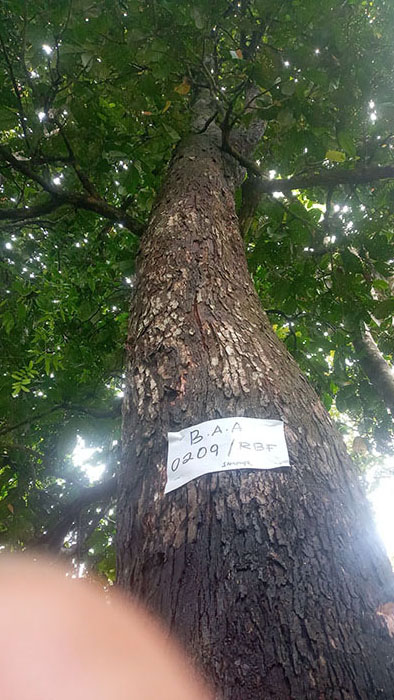 B.A.A
0209/RBF